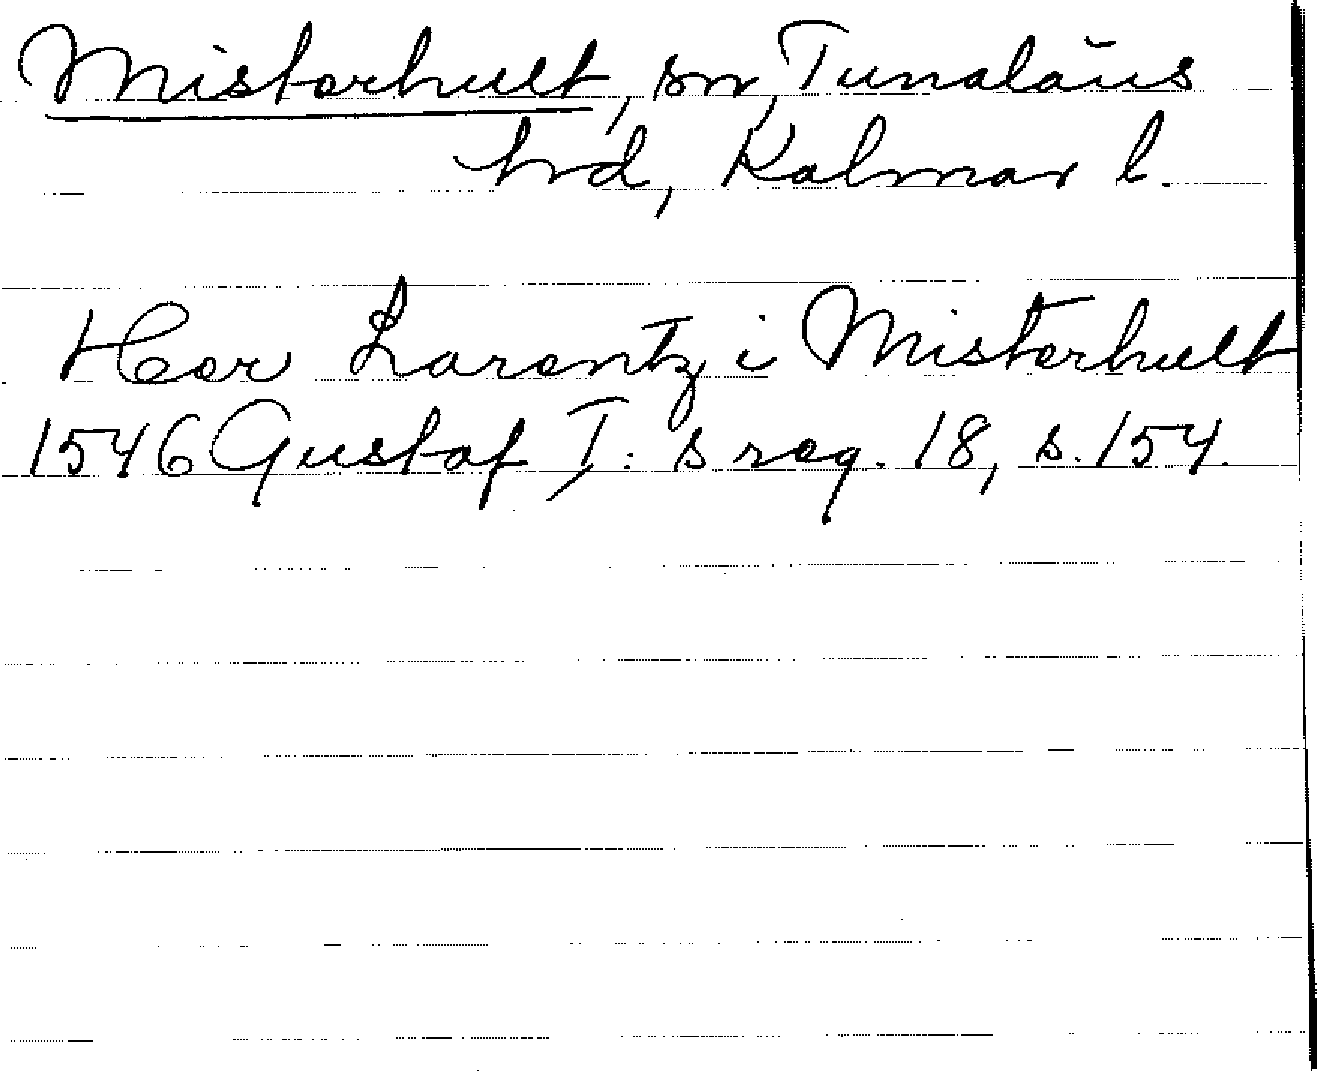 Misterhult, sn, Tunaläns
hrd, Kalmar l.
Her Larentz i Misterhult
1546 Gustaf I: s reg. 18, s. 154.